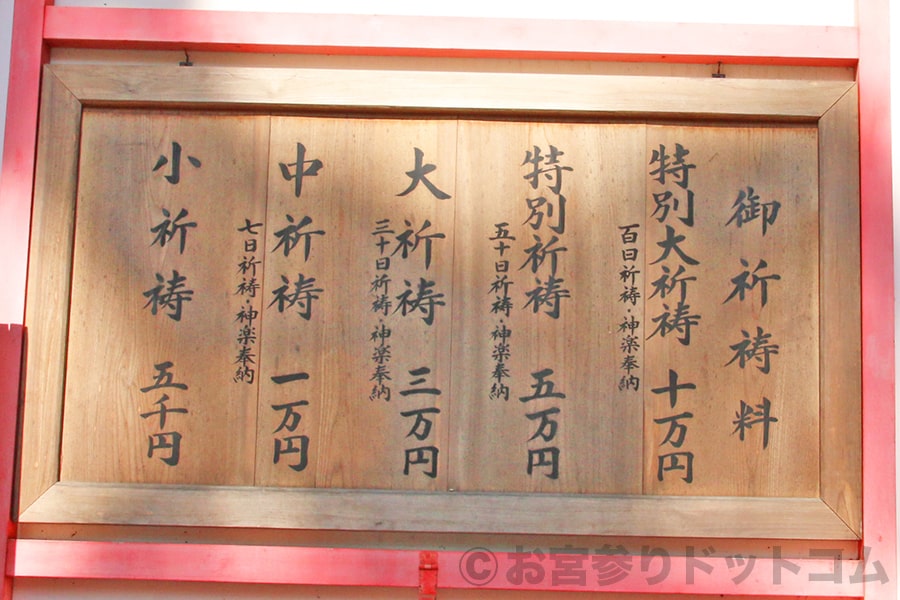 御祈祷料
特別大祈祷 十万円
百日祈祷・神楽奉納
特別祈祷 五万円
五十日祈祷・神楽奉納
大祈祷 三万円
三十日祈祷・神楽奉納
中祈祷 一万円
七日祈祷・神楽奉納
小祈祷 五千円
©お宮参りドットコム